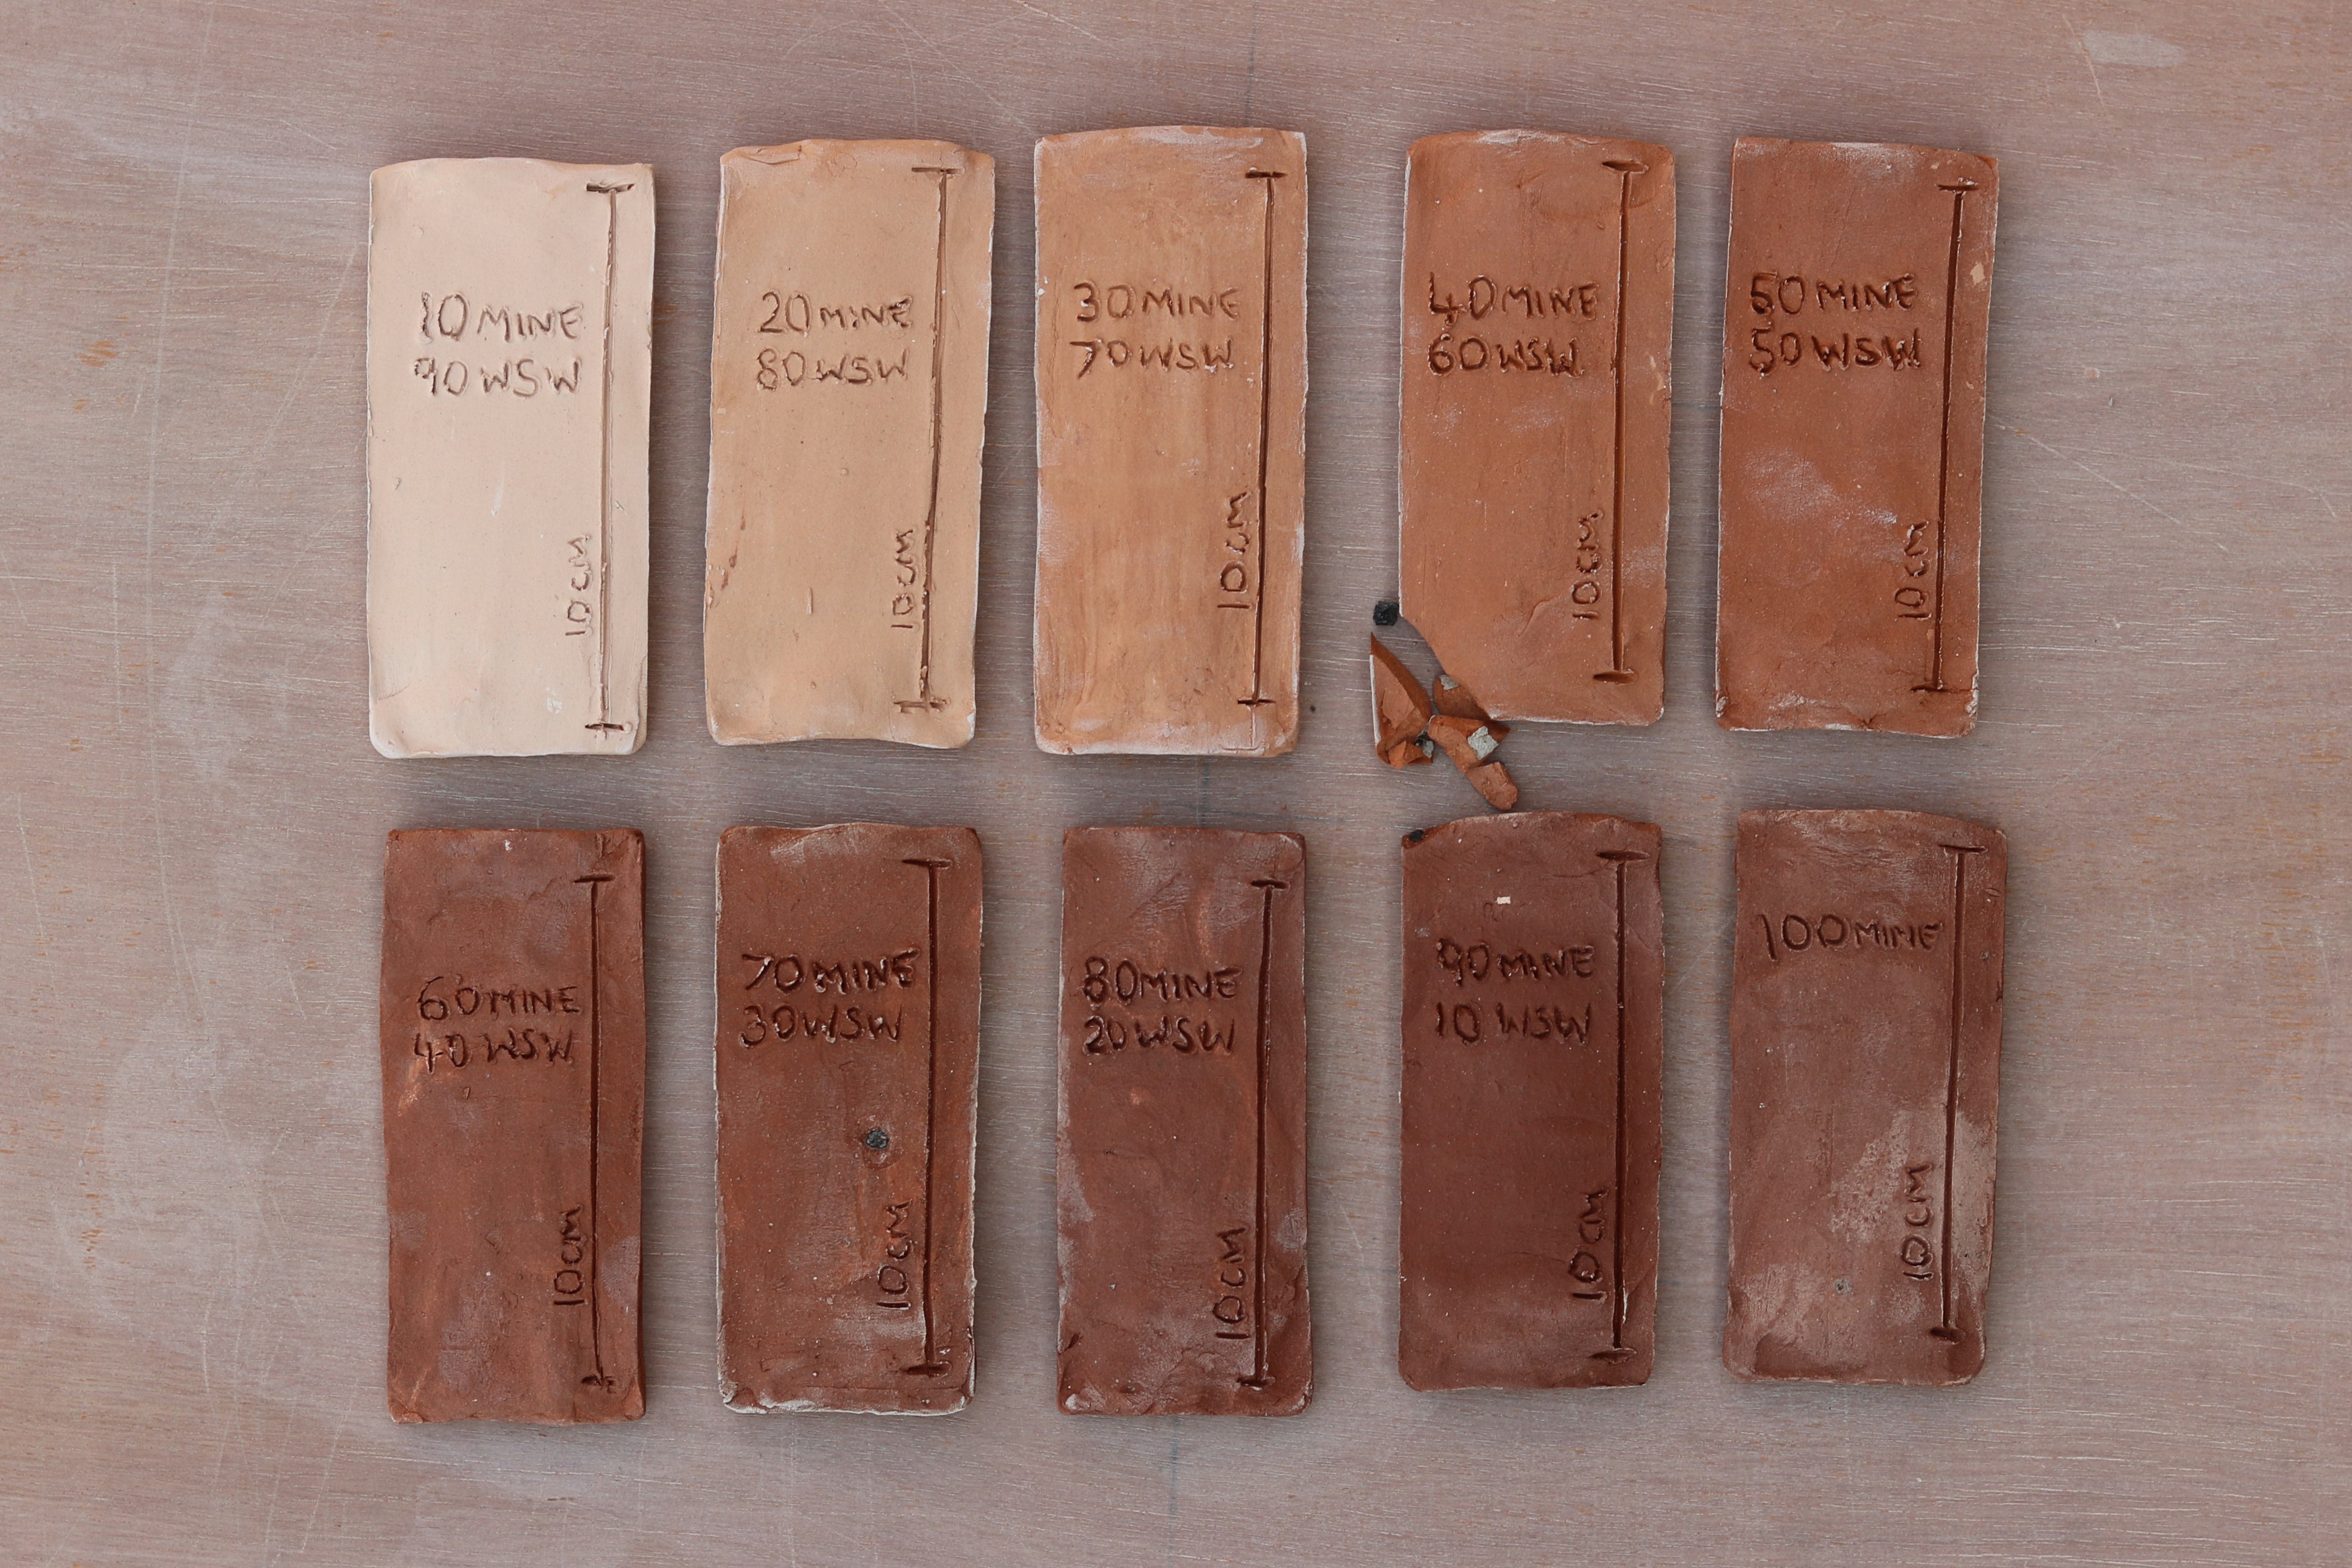 10 MINE
90 WSW
10CM
20 MINE
80 WSW
10CM
30 MINE
70 WSW
10CM
40 MINE
60 WSW
10CM
50 MINE
50 WSW
10CM
60 MINE
40 WSW
10CM
70 MINE
30 WSW
10CM
80 MINE
20 WSW
10CM
90 MINE
10 WSW
10CM
100 MINE
10CM